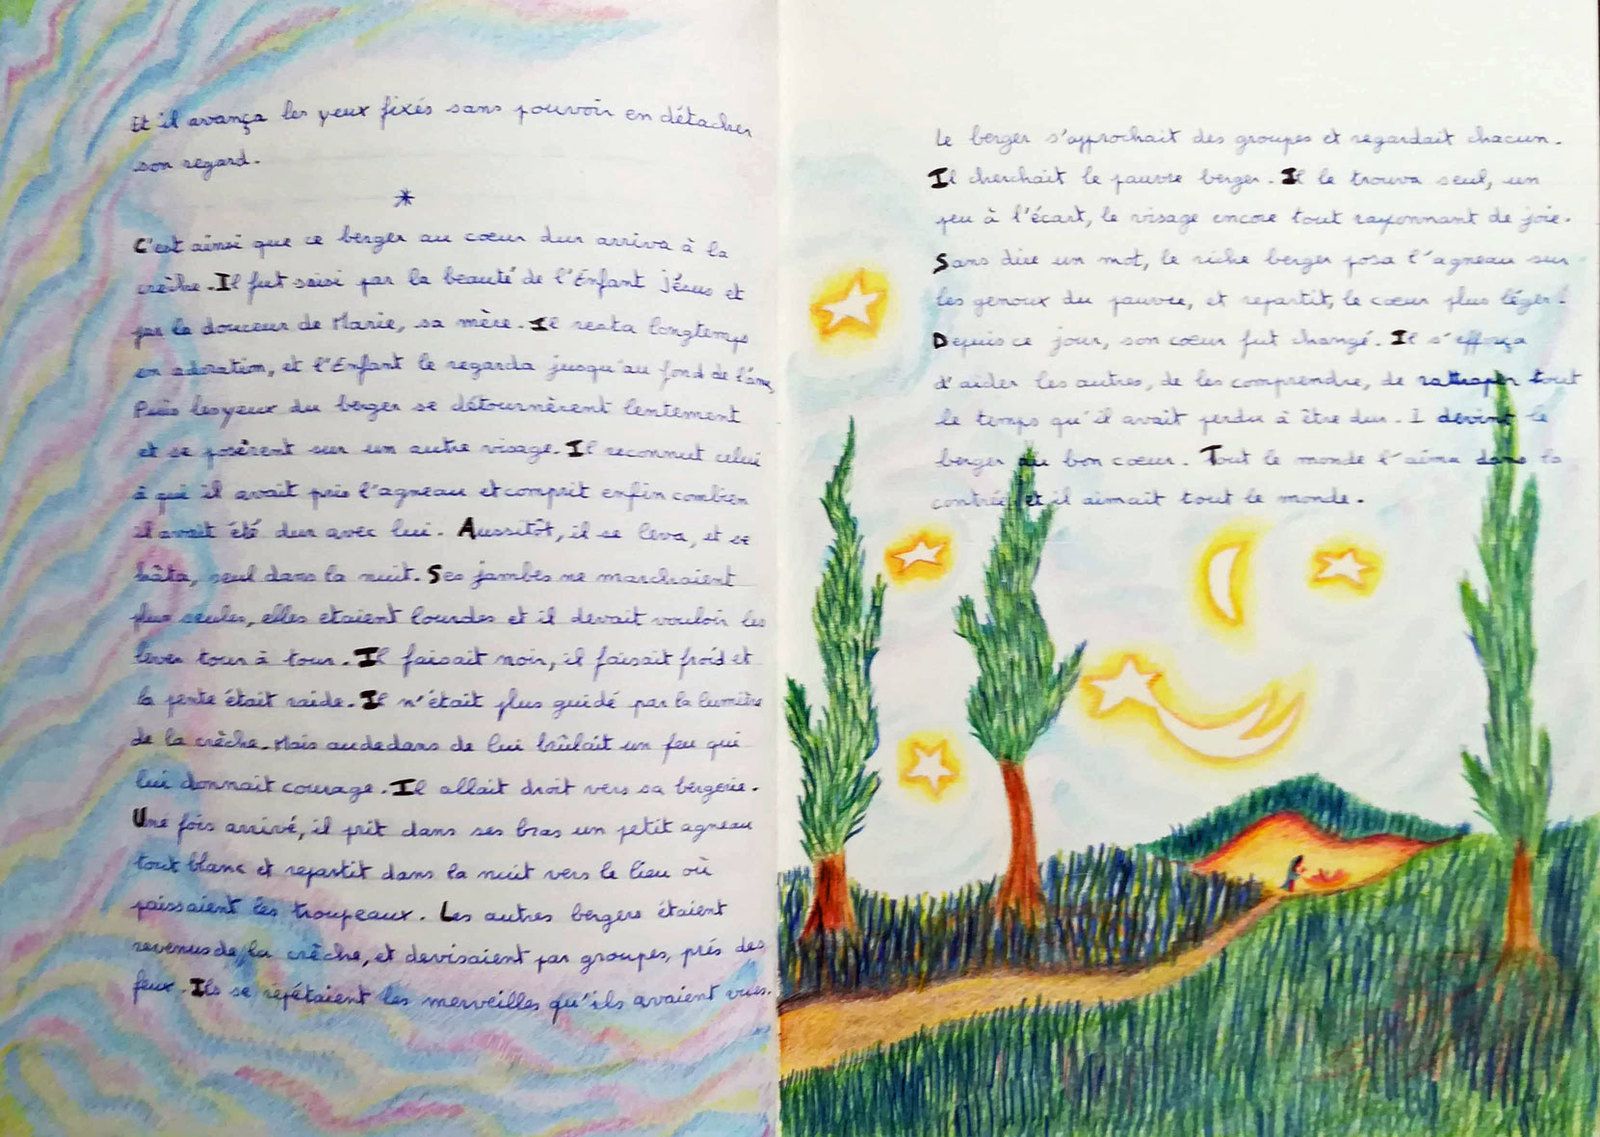 Et il avança les yeux fixés sans pouvoir en détacher
son regard.
*
C'est ainsi que ce berger au cœur dur arriva à la
crèche. Il fut saisi par la beauté de l'Enfant Jésus et
par la douceur de Marie, sa mère. Il resta longtemps
en adoration, et l'Enfant le regarda jusqu'au fond de l'âme,
Puis les yeux du berger se détournèrent lentement
et se posèrent sur un autre visage. Il reconnut celui
à qui il avait pris l'agneau et comprit enfin combien
il avait été dur avec lui. Aussitôt, il se leva, et se
hâta, seul dans la nuit. Ses jambes ne marchaient
plus seules, elles etaient lourdes et il devait vouloir les
lever tour à tour. Il faisait noir, il faisait froid et
la pente était raide. Il n'était plus guidé par la lumière
de la crèche. Mais au dedans de lui brûlait un feu qui
lui donnait courage. Il allait droit vers sa bergerie.
Une fois arrivé, il prit dans ses bras un petit agneau
tout blanc et repartit dans la nuit vers le lieu où
paissaient les troupeaux. Les autres bergers étaient
revenus de la crèche, et devisaient par groupes, près des
feux. Ils se répétaient les merveilles qu'ils avaient vues.
Le berger s'approchait des groupes et regardait chacun.
Il cherchait le pauvre berger. Il le trouva seul, un
peu à l'écart, le visage encore tout rayonnant de joie.
Sans dire un mot, le riche berger posa l'agneau sur
les genoux du pauvre, et repartit, le cœur plus léger.
Depuis ce jour, son cœur fut changé. Il s'efforça
d'aider les autres, de les comprendre, de rattraper tout
le temps qu'il avait perdu à être dur. I devint le
berger au bon cœur. Tout le monde l'aima dans la
contrée et il aimait tout le monde.